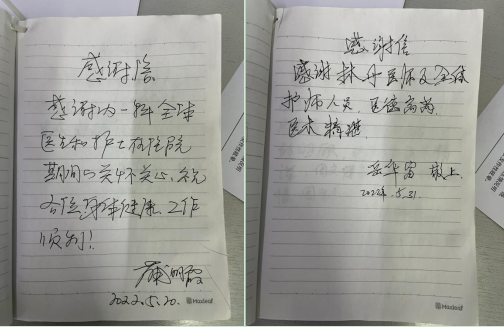 感谢信
感谢内一科全体
医生和护士在住院
期间的关怀关心,祝
各位身体健康,工作
顺利!
2022.5.20.
Hadeaf
感谢信
感谢林丹医师及全体
护师人员,医德高尚,
医术精湛.
岳华富 敬上.
2022.5.31.
Hadeaf